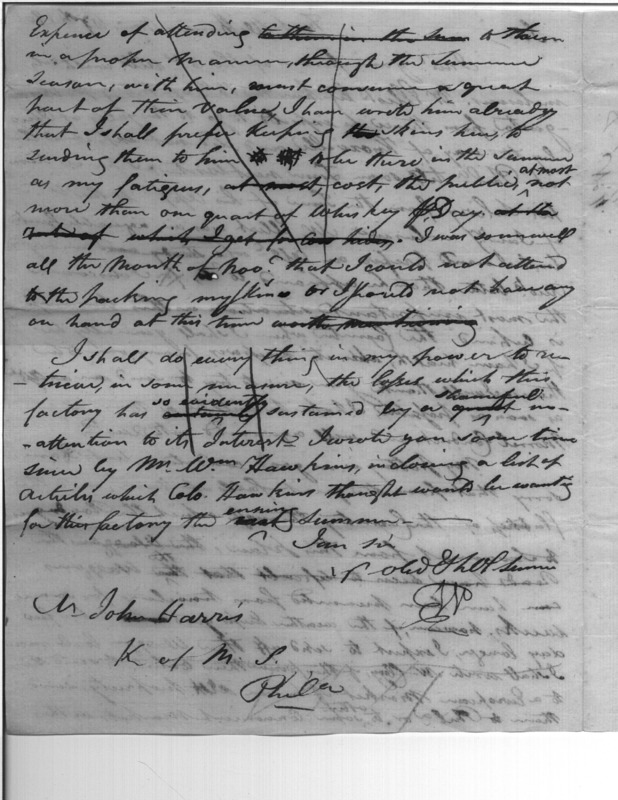 Expence of attending to them in the Sum to them
in a proper manner, through the Summer
Season, with him, must consume a great
part of their value, I have wrote him already
that I shall prefer keeping the skins here, to
sending them to him to be there in the Summer
as my fatigues, at most, cost, the public, at most not
more than one quart of Whiskey Day. at the
rate of which I get for Cow hides. I was so unwell
all the Month of Nov.r that I could not attend
to the packing my skins or I should not have any
on hand at this time
I shall do every thing in my power to re-
-trieve, in some measure, the losses which this
factory has so evidently sustained by a great shameful in-
-attention to its Interest I wrote you some time
since by Mr. Wm Hawkins, inclosing a list of
articles which Colo. Hawkins thought would be wanting
for this factory the next ensuing Summer
I am Sir
yr obed.t Hble Serv
EP
Mr. John Harris
K of M S.
Phila